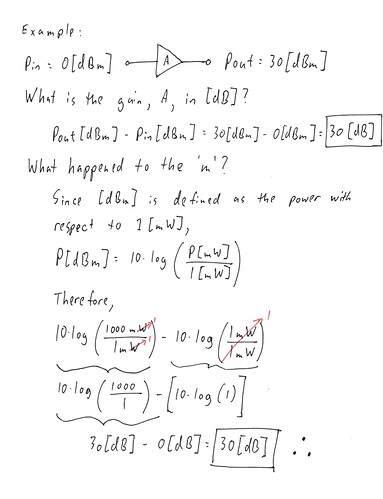 Example:
Pin = 0[dBm] A Pout = 30[dBm]
What is the gain, A, in [dB]?
Pout[dBm] - Pin[dBm] = 30[dBm] - 0[dBm] = 30[dB]
What happened to the 'm'?
Since [dBm] is defined as the power with
respect to 1[mW],
P[dBm] = 10·log (P[mW] / 1[mW])
Therefore,
10·log (1000 mW / 1mW) - 10·log (1mW / 1mW)
10·log (1000 / 1) - [10·log (1)]
30[dB] - 0[dB] = 30[dB] ∴